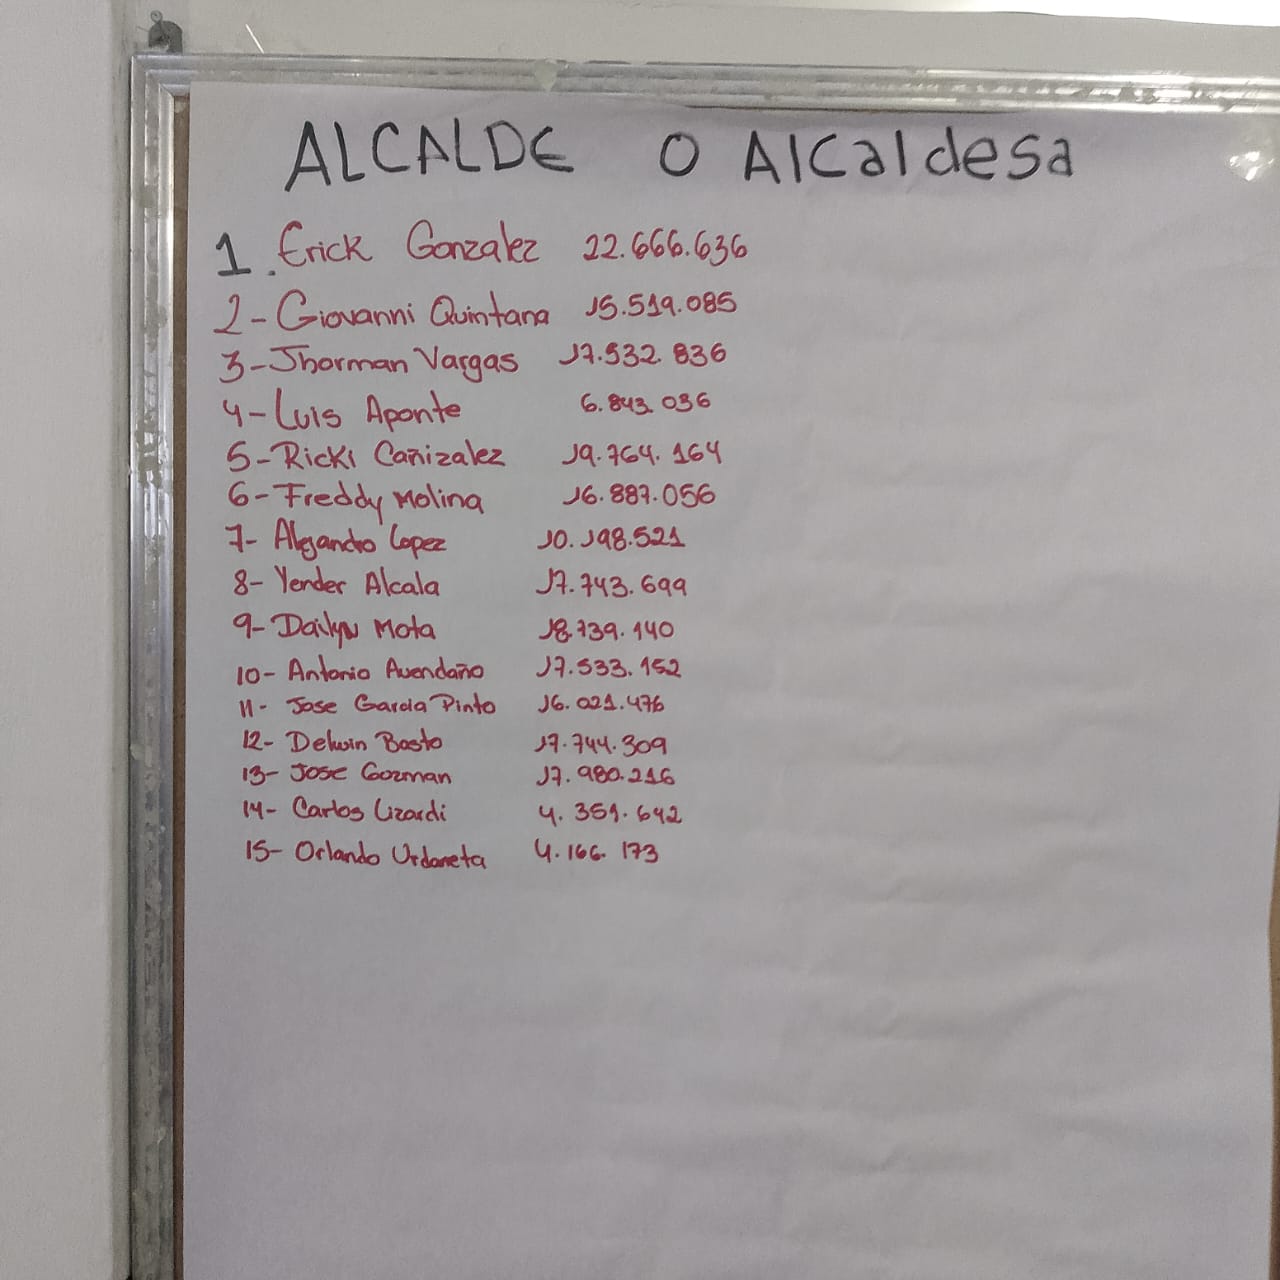 ALCALDE O Alcaldesa
1. Erick Gonzalez 22.666.636
2- Giovanni Quintana 15.519.085
3- Jhorman Vargas 17.532.836
4- Luis Aponte 6.843.036
5- Ricki Cañizalez 19.764.164
6- Freddy Molina 16.887.056
7- Alejandro Lopez 10.198.521
8- Yender Alcala 17.743.699
9- Dailyn Mota 18.739.140
10- Antonio Avendaño 17.533.152
11- Jose Garcia Pinto 16.021.476
12- Delwin Basto 17.744.309
13- Jose Gozman 17.980.216
14- Carlos Lizardi 4.351.642
15- Orlando Urdaneta 4.166.173